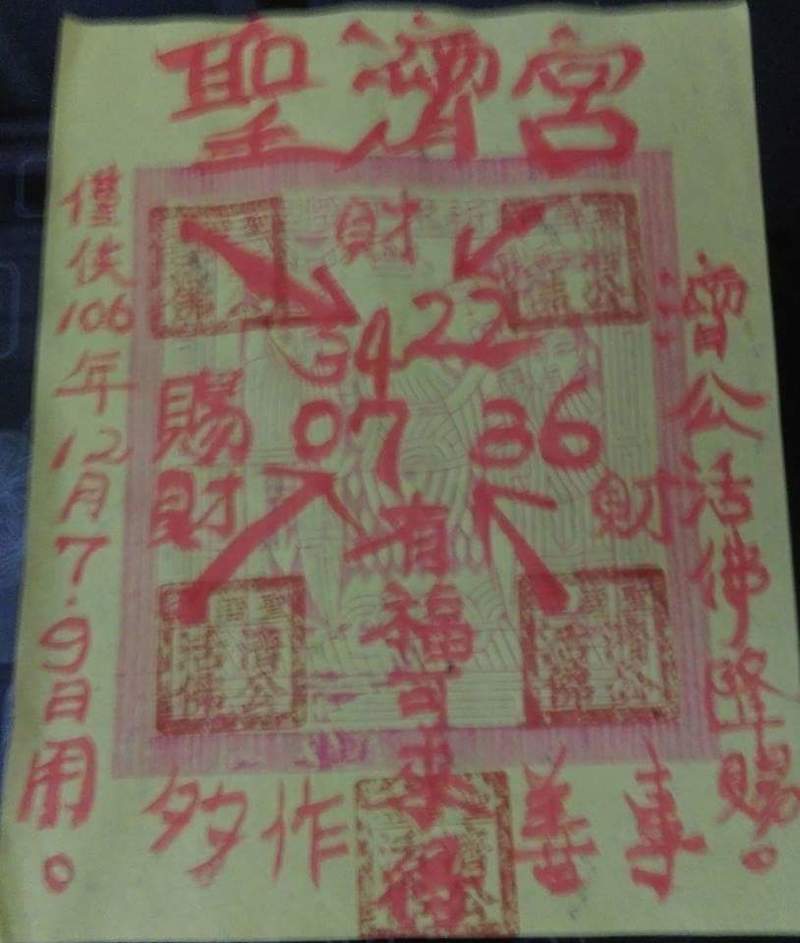 聖濟宮
財
34 22
賜財
07 36
財
有福可來得
濟公活佛降賜。
僅供106年12月7.9日用。
多作善事
聖濟宮
濟公活佛
聖濟宮
濟公活佛